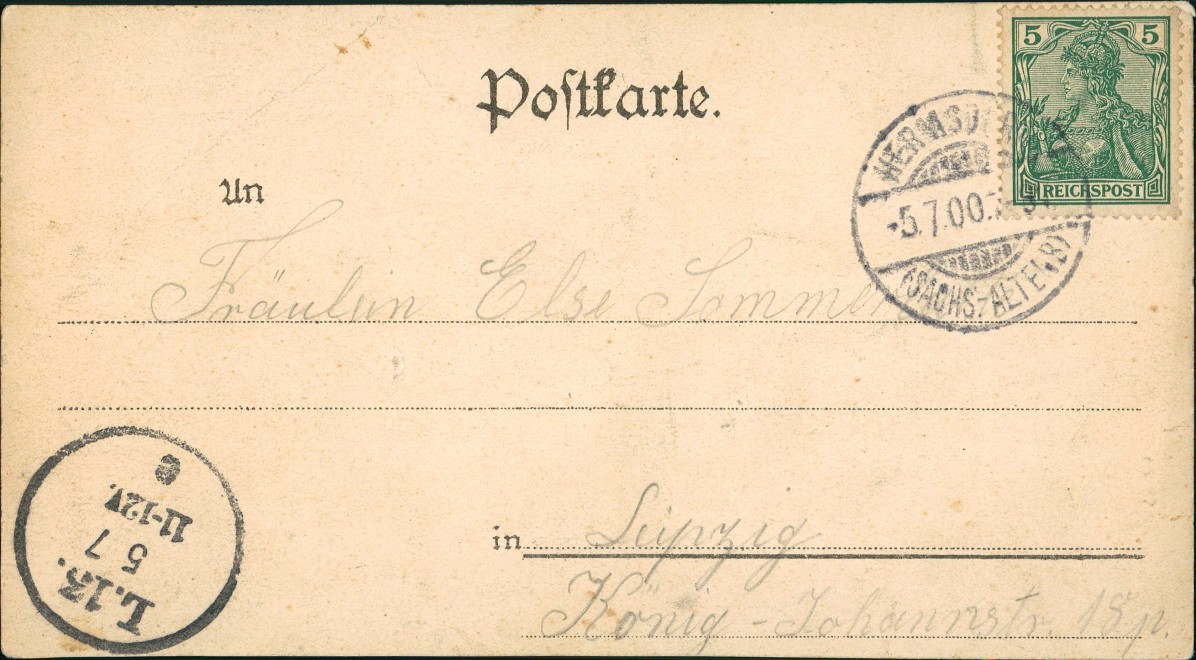 Postkarte.
5 5
REICHSPOST
HERMSDORF
-5.7.00.
(SACHS.-ALTENB)
An
Fräulein Else Sommer
in Leipzig
König-Johannstr. 18 p.
L.13.
5 7
11-12V.
e